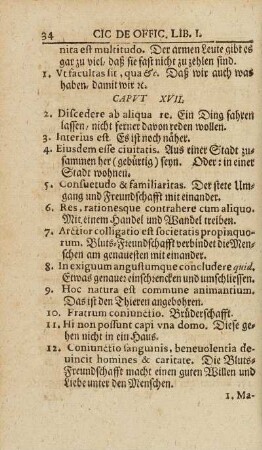 34 CIC DE OFFIC. LIB. I.
nita est multitudo. Der armen Leute gibt es
gar zu viel, daß sie fast nicht zu zehlen sind.
1. Vt facultas sit, qua &c. Daß wir auch was
haben, damit wir ꝛc.
CAPVT XVII.
2. Discedere ab aliqua re. Ein Ding fahren
lassen, nicht ferner davon reden wollen.
3. Interius est. Es ist noch näher.
4. Eiusdem esse civitatis. Aus einer Stadt zu-
sammen her (gebürtig) seyn. Oder: in einer
Stadt wohnen.
5. Consuetudo & familiaritas. Der stete Um-
gang und Freundschafft mit einander.
6. Res, rationesque contrahere cum aliquo.
Mit einem Handel und Wandel treiben.
7. Arctior colligatio est societatis propinquo-
rum. Bluts-Freundschafft verbindet die Men-
schen am genauesten mit einander.
8. In exiguum angustumque concludere quid.
Etwas genauer einschrencken und umschliessen.
9. Hoc natura est commune animantium.
Das ist den Thieren angebohren.
10. Fratrum coniunctio. Brüderschafft.
11. Hi non possunt capi vna domo. Diese ge-
hen nicht in ein Haus.
12. Coniunctio sanguinis, benevolentia de-
uincit homines & caritate. Die Bluts-
Freundschafft macht einen guten Willen und
Liebe unter den Menschen.
1. Ma-